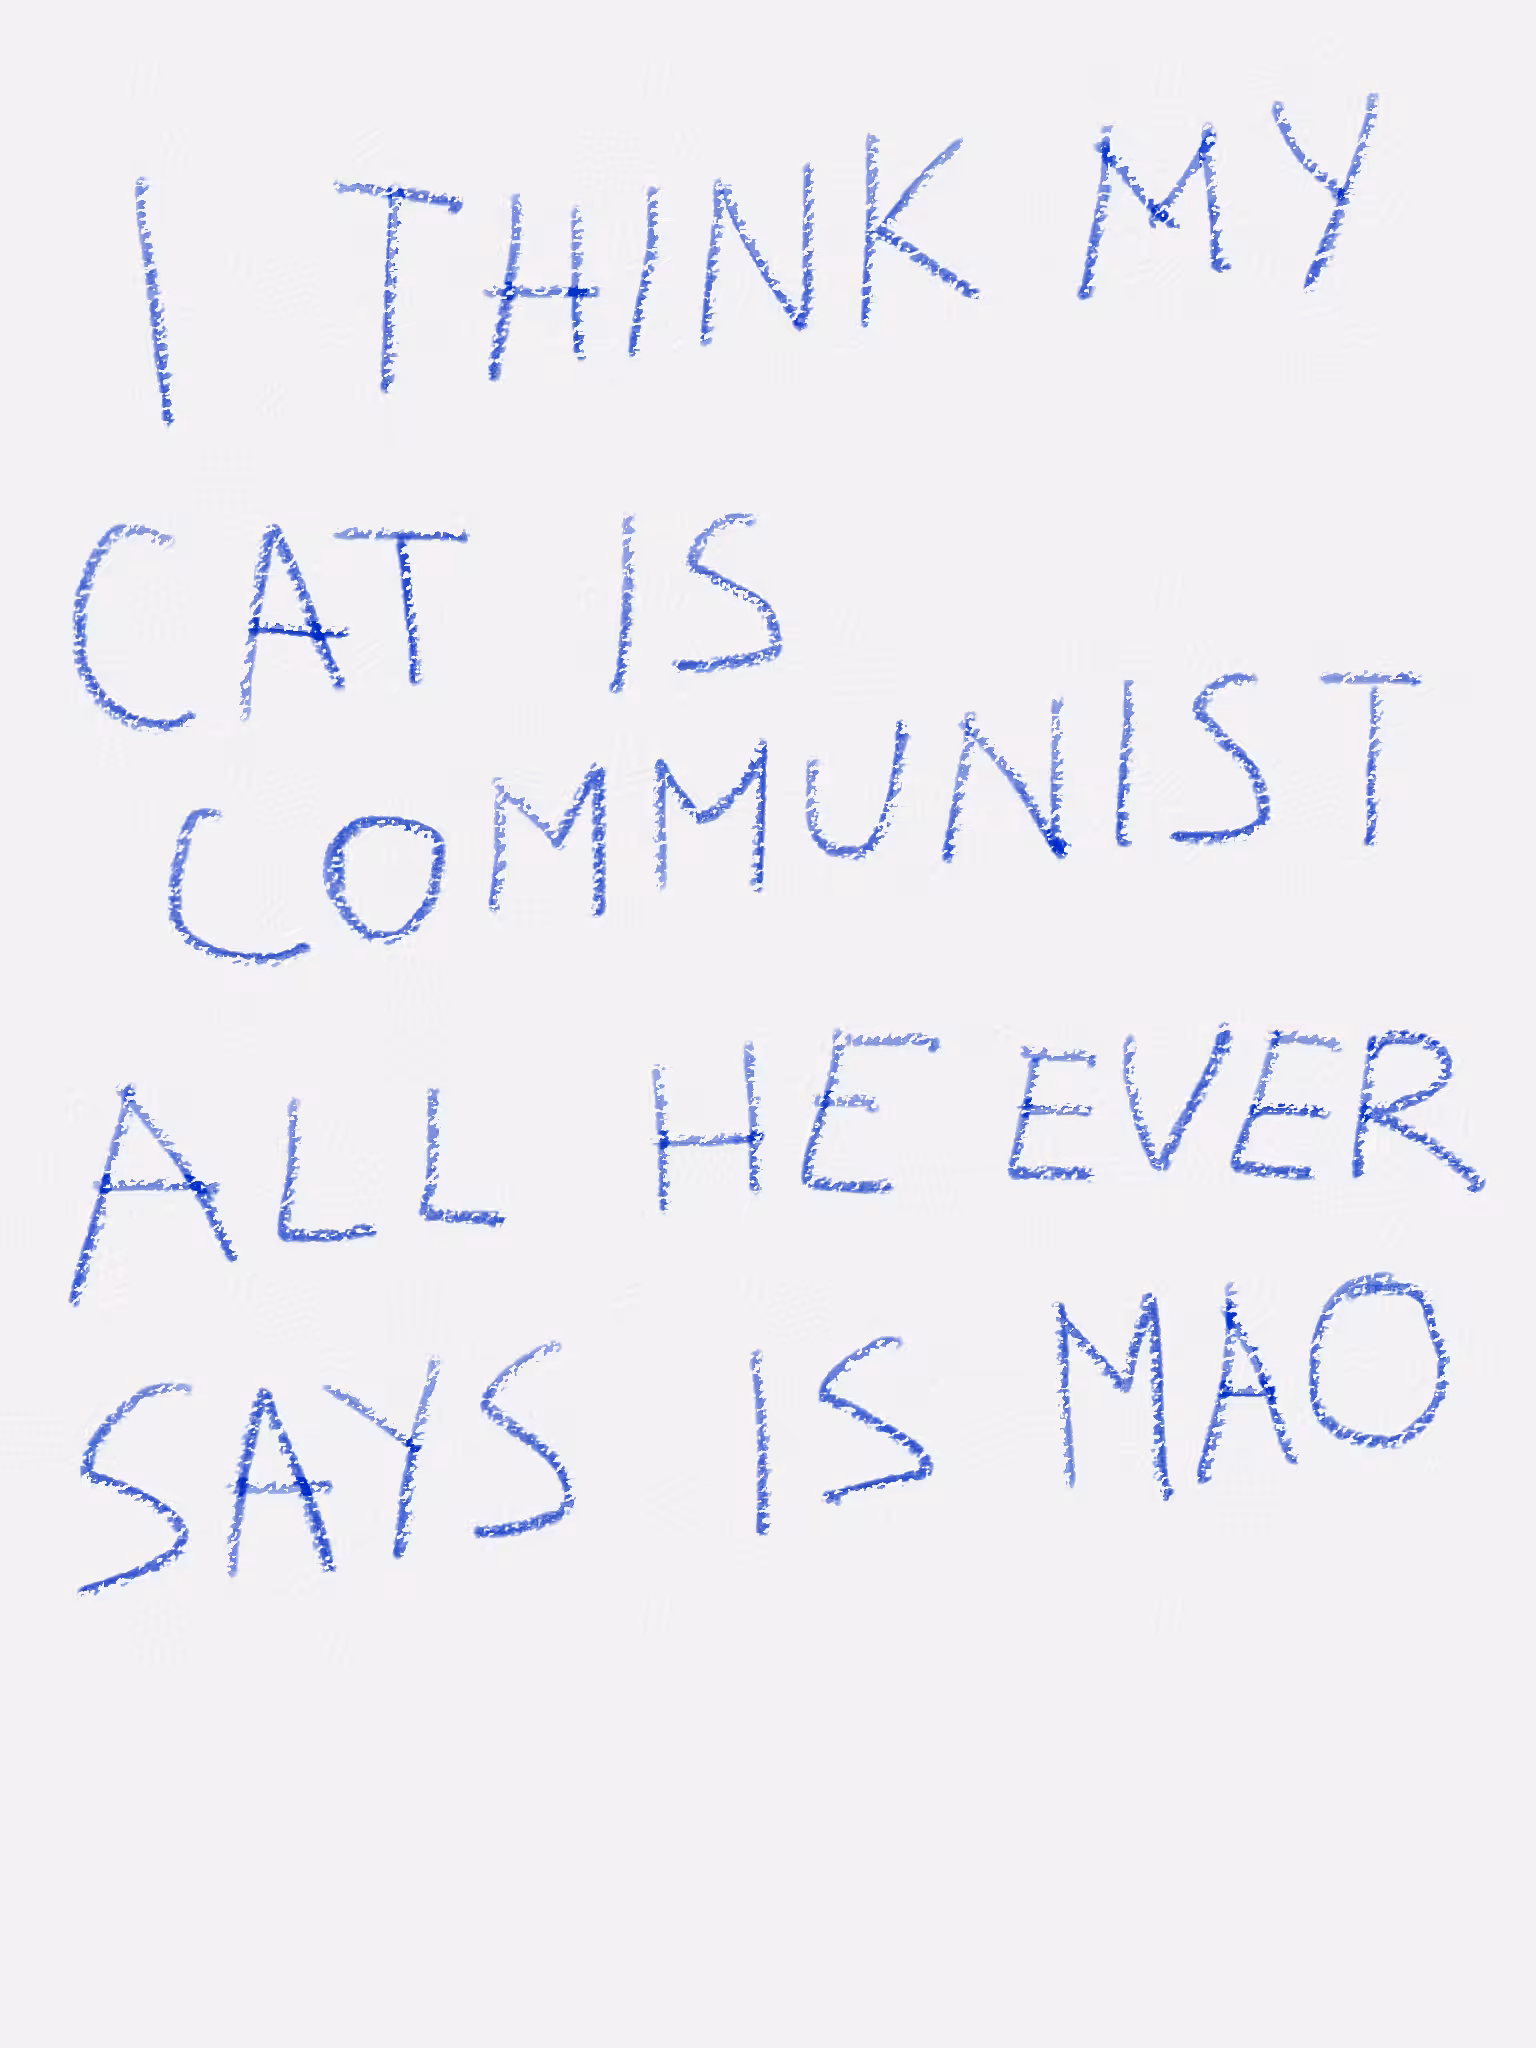 I THINK MY
CAT IS
COMMUNIST
ALL HE EVER
SAYS IS MAO